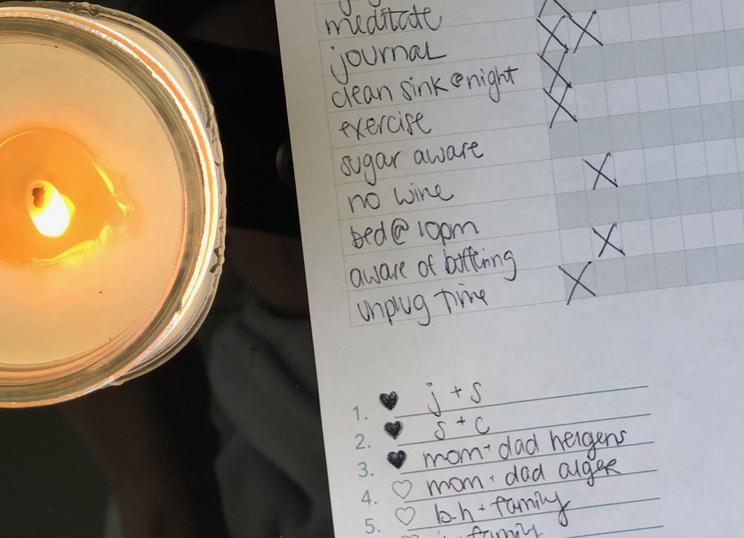 meditate
journal
clean sink @ night
exercise
sugar aware
no wine
bed @ 10pm
aware of buffering
unplug time
1. j + s
2. s + c
3. mom + dad hergens
4. mom + dad algee
5. b.h + family
family